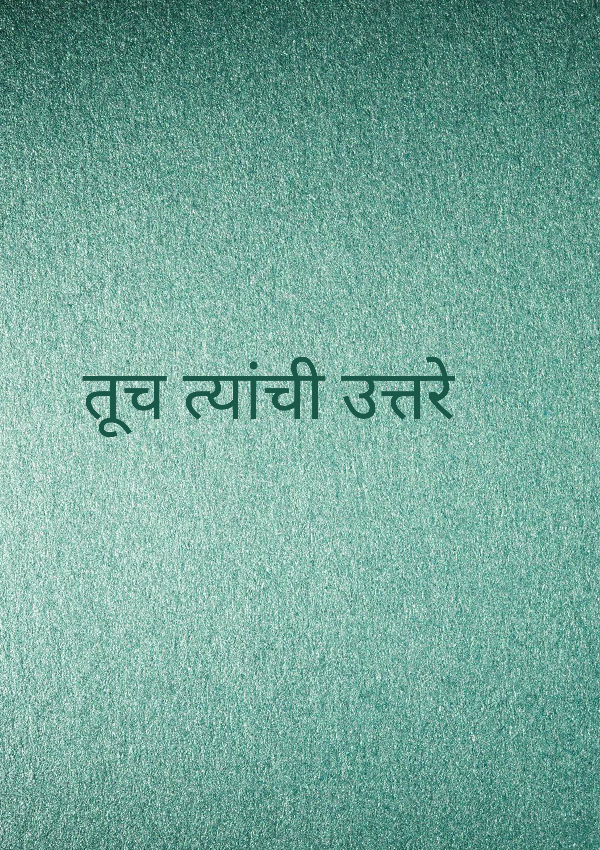 तूच त्यांची उत्तरे